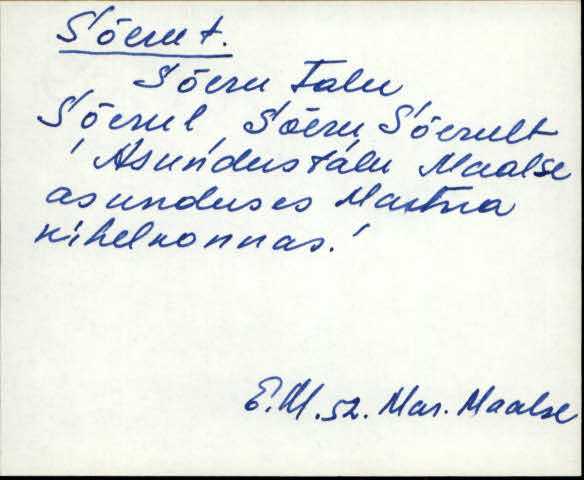 S'õeru t.
S'õeru talu
S'õerul S'õeru S'õerult
'Asund́ustálu Maalse
asunduses Martna
kihelkonnas.'
E.M. 52. Mar. Maalse